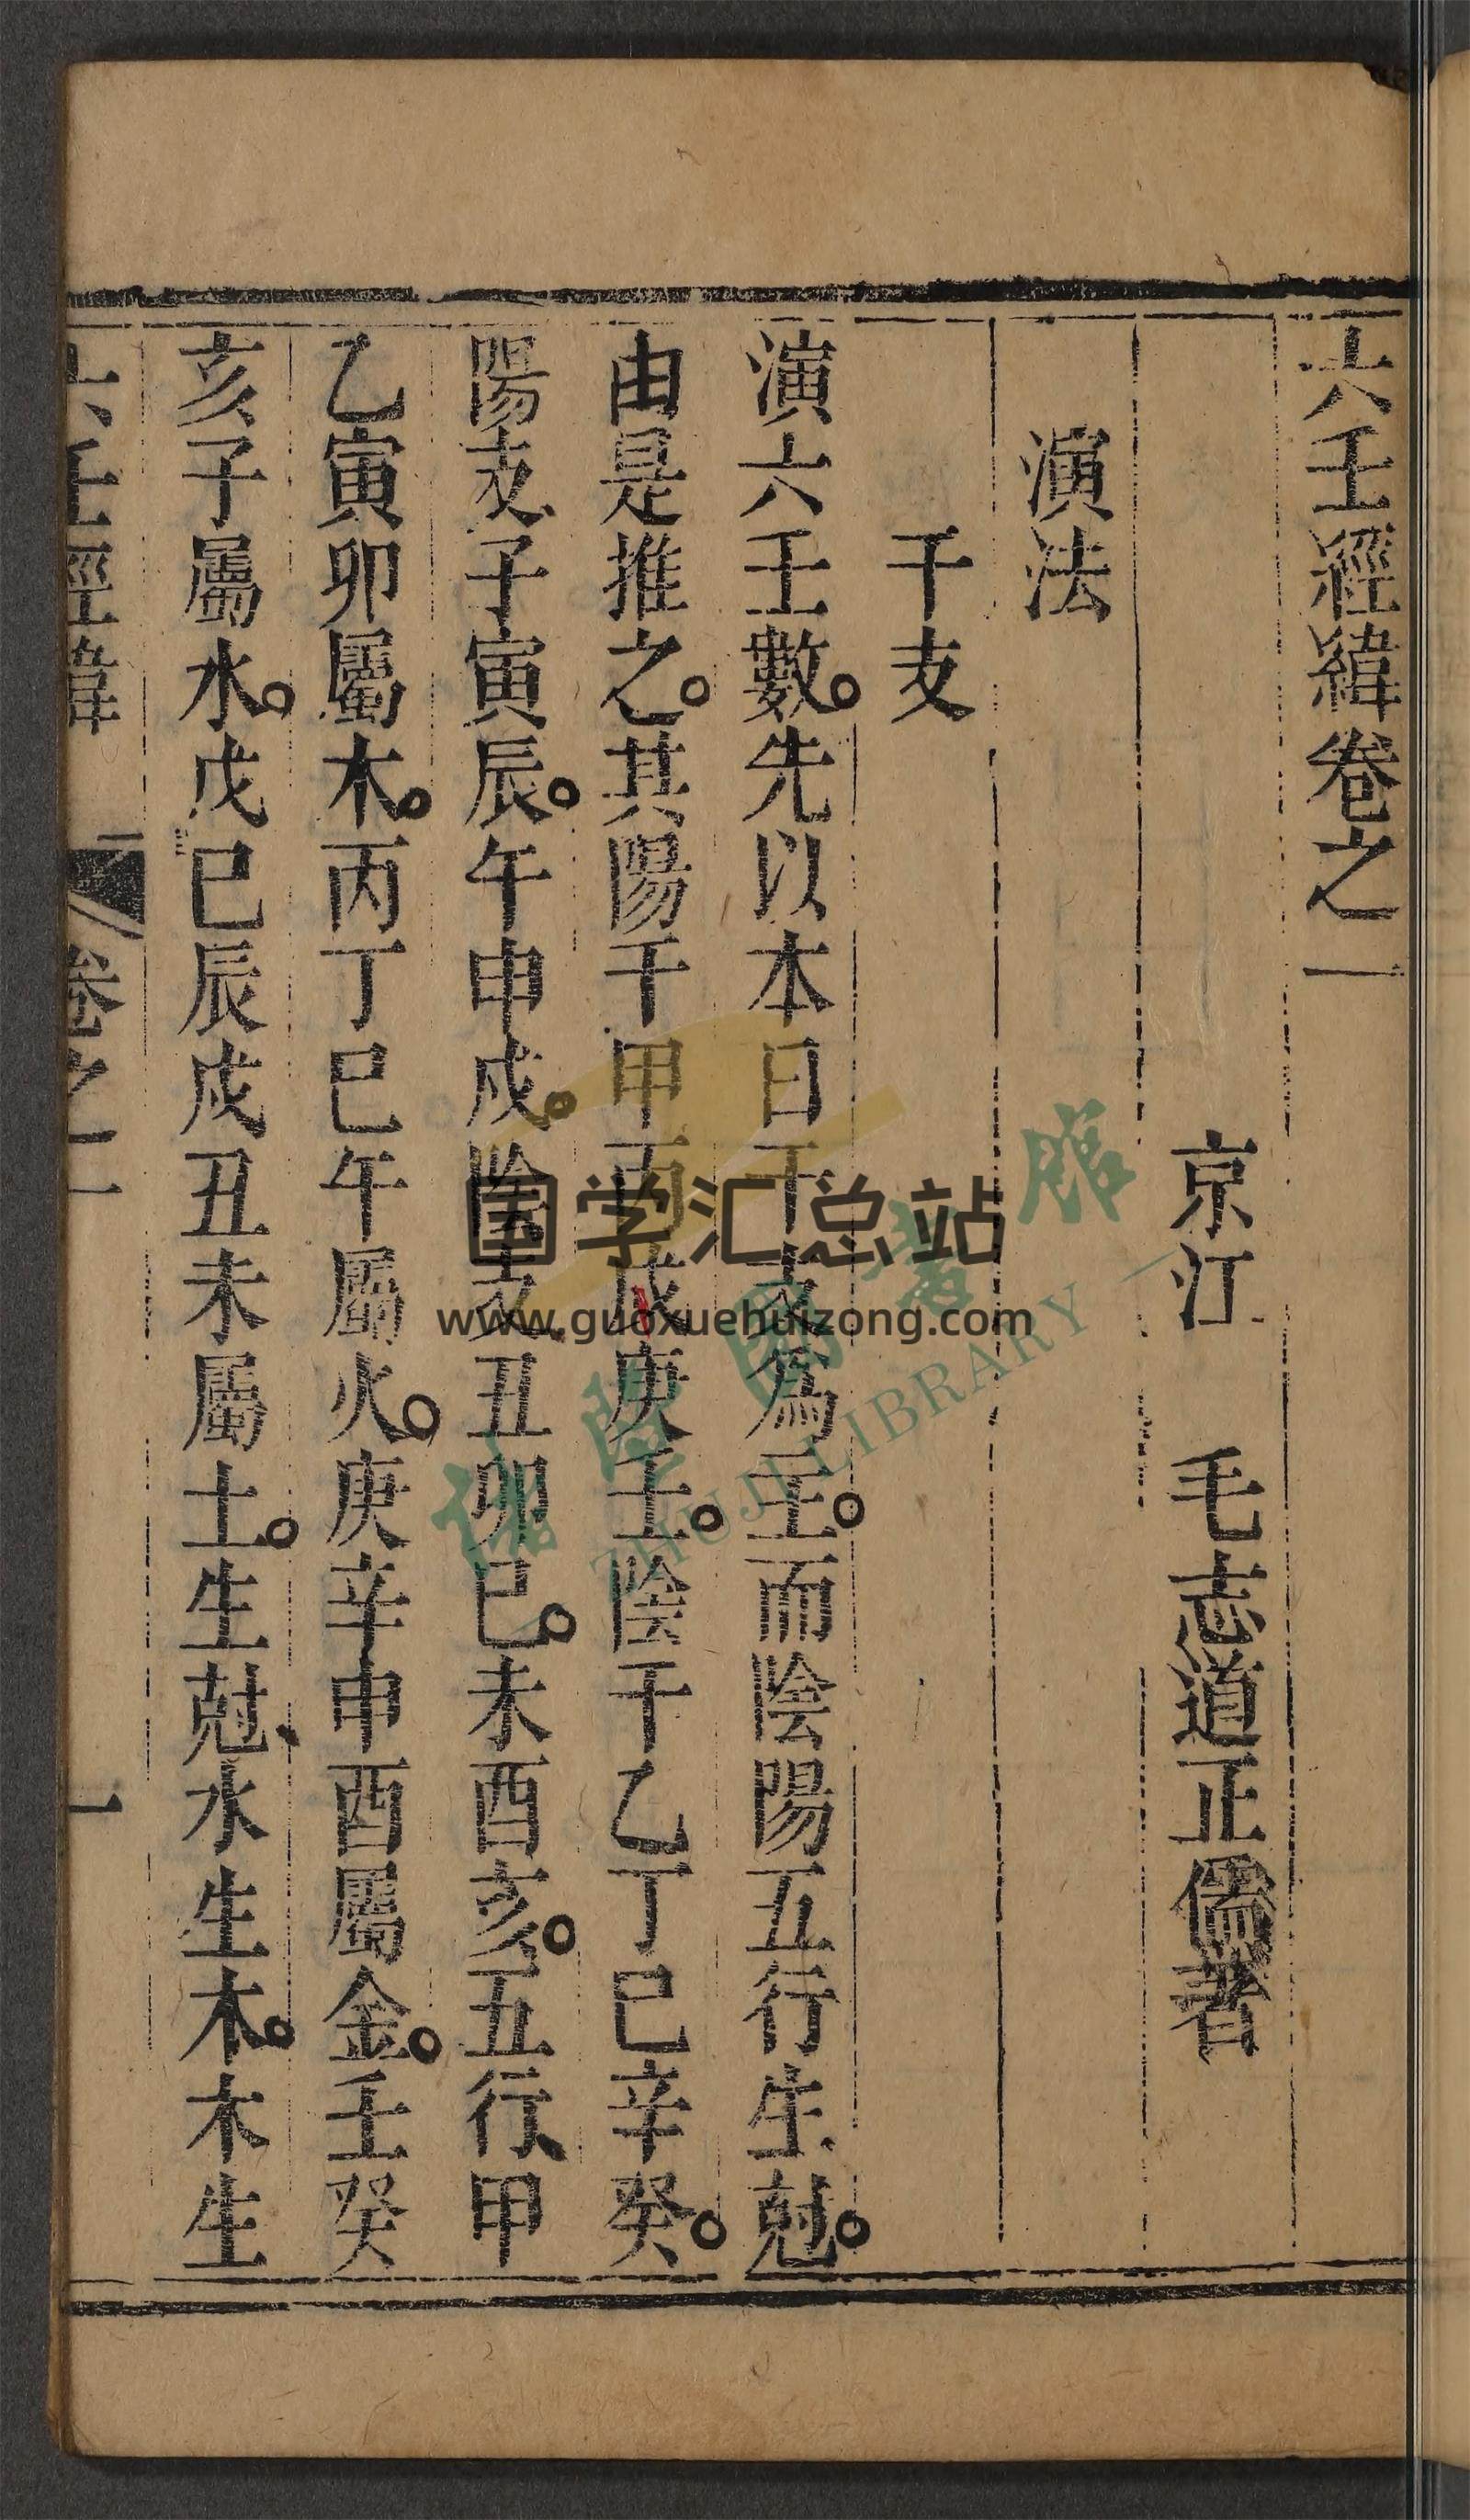 六壬經緯卷之一
京江　毛志道正儒著
演法
干支
演六壬數。先以本日干支爲主。而陰陽五行生尅。
由是推之。其陽干甲丙戊庚壬。陰干乙丁已辛癸。
陽支子寅辰。午申戌。陰支丑卯巳。未酉亥。五行、甲
乙寅卯屬木。丙丁巳午屬火。庚辛申酉屬金。壬癸
亥子屬水。戊已辰戌丑未屬土。生尅、水生木。木生
六壬經緯　卷之一　一
国学汇总站
www.guoxuehuizong.com
ZHUJI LIBRARY